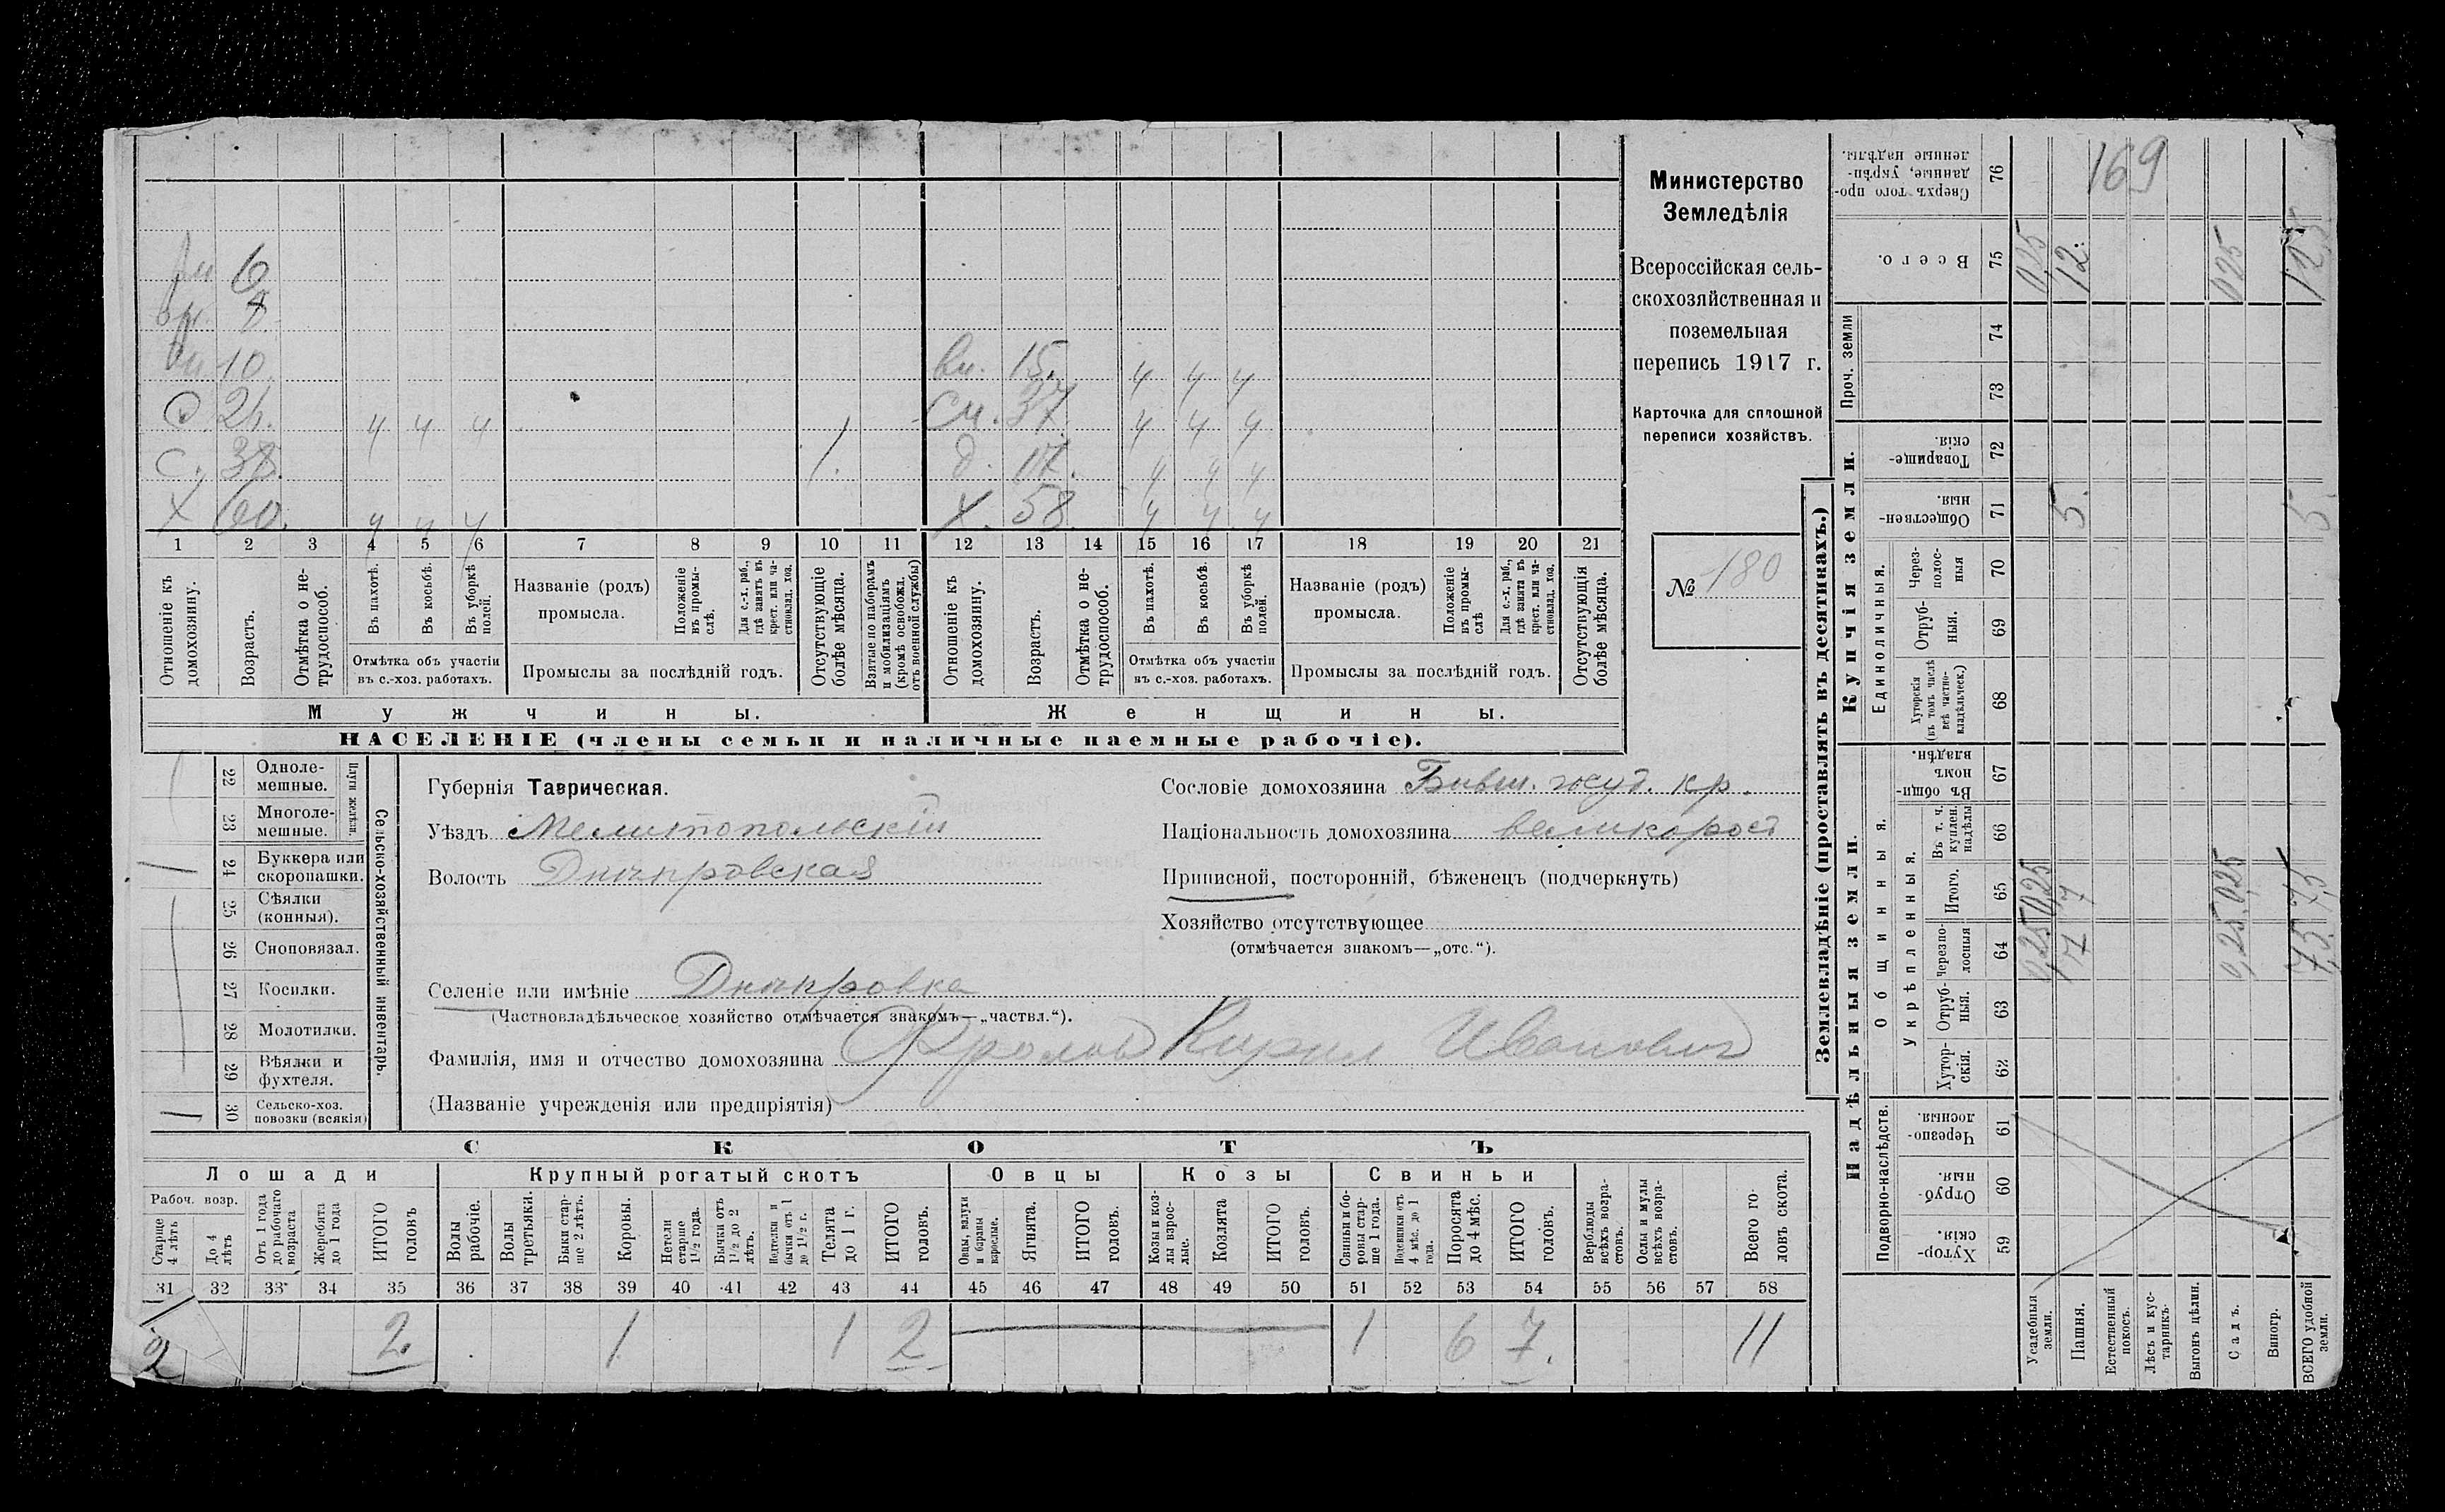 Министерство
Земледѣлія
Всероссійская сель-
скохозяйственная и
поземельная
перепись 1917 г.
Карточка для сплошной
переписи хозяйствъ.
№ 180
6
8
10
вн. 15. ч ч ч
с 24. ч ч ч
1.
сн. 37 ч ч ч
с. 38.
1.
д. 17. ч ч ч
х 60. ч ч ч
х. 58. ч ч ч
1 2 3 4 5 6 7 8 9 10 11 12 13 14 15 16 17 18 19 20 21
Отношеніе къ домохозяину.
Возрастъ.
Отмѣтка о не-трудоспособ.
Въ пахотѣ.
Въ косьбѣ.
Въ уборкѣ полей.
Отмѣтка объ участіи
въ с.-хоз. работахъ.
Названіе (родъ)
промысла.
Положеніе въ промы-слѣ.
Для с.-х. раб., гдѣ занятъ въ крест. или ча-стновлад. хоз.
Промыслы за послѣдній годъ.
Отсутствующіе болѣе мѣсяца.
Взятые по наборамъ и мобилизаціямъ (кромѣ освобожд. отъ военной службы)
Отношеніе къ домохозяину.
Возрастъ.
Отмѣтка о не-трудоспособ.
Въ пахотѣ.
Въ косьбѣ.
Въ уборкѣ полей.
Отмѣтка объ участіи
въ с.-хоз. работахъ.
Названіе (родъ)
промысла.
Положеніе въ промы-слѣ
Для с.-х. раб., гдѣ занята въ крест. или ча-стновлад. хоз.
Промыслы за послѣдній годъ.
Отсутствующія болѣе мѣсяца.
Мужчины.
Женщины.
НАСЕЛЕНІЕ (члены семьи и наличные наемные рабочіе).
22 Одноле-мешные.
23 Многоле-мешные.
Плуги желѣзн.
24 Буккера или скоропашки.
25 Сѣялки (конныя).
26 Сноповязал.
27 Косилки.
28 Молотилки.
29 Вѣялки и фухтеля.
30 Сельско-хоз. повозки (всякія)
Сельско-хозяйственный инвентарь.
Губернія Таврическая.
Уѣздъ Мелитопольскій
Волость Днѣпровская
Селеніе или имѣніе Днѣпровка
(Частновладѣльческое хозяйство отмѣчается знакомъ—„частвл.“).
Фамилія, имя и отчество домохозяина Фролов Кирил Иванович
(Названіе учрежденія или предпріятія)
Сословіе домохозяина Бывш. госуд. кр.
Національность домохозяина великоросъ
Приписной, посторонній, бѣженецъ (подчеркнуть)
Хозяйство отсутствующее
(отмѣчается знакомъ—„отс.“).
СКОТЪ
Лошади
Крупный рогатый скотъ
Овцы
Козы
Свиньи
Рабоч. возр.
Старше 4 лѣтъ
До 4 лѣтъ
Отъ 1 года до рабочаго возраста
Жеребята до 1 года
ИТОГО головъ
Волы рабочіе.
Волы третьяки.
Быки стар-ше 2 лѣтъ.
Коровы.
Нетели старше 1½ года.
Бычки отъ 1½ до 2 лѣтъ.
Нетелки и бычки отъ 1 до 1½ г.
Телята до 1 г.
ИТОГО головъ.
Овцы, валухи и бараны взрослые.
Ягнята.
ИТОГО головъ.
Козы и коз-лы взрос-лые.
Козлята
ИТОГО головъ.
Свиньи и бо-ровы стар-ше 1 года.
Подсвинки отъ 4 мѣс. до 1 года.
Поросята до 4 мѣс.
ИТОГО головъ.
Верблюды всѣхъ возра-стовъ.
Ослы и мулы всѣхъ возра-стовъ.
Всего го-ловъ скота.
31 32 33 34 35 36 37 38 39 40 41 42 43 44 45 46 47 48 49 50 51 52 53 54 55 56 57 58
2 2. 1 1 2 1 6 7. 11
Землевладѣніе (проставлять въ десятинахъ.)
Надѣльныя земли.
Купчія земли.
Проч. земли
Подворно-наслѣдств.
Общинныя.
Укрѣпленныя.
Единоличныя.
Сверхъ того про-данные, укрѣп-ленные надѣлы. 76
169
Всего. 75
0,25 12. 0,25 12,5
74
73
Товарище-скія. 72
Обществен-ныя. 71
5. 5.
Через-полос-ныя 70
Отруб-ныя. 69
Хуторскія (въ томъ числѣ всѣ частно-владѣльческ.) 68
Въ общи-номъ владѣн. 67
Въ т. ч. куплен. надѣлы 66
Итого. 65
0,25 7 0,25 7,5
Черезпо-лосныя 64
0,25 7 0,25 7,5
Отруб-ныя. 63
Хутор-скія. 62
Черезпо-лосныя. 61
Отруб-ныя. 60
Хутор-скія. 59
Усадебныя земли.
Пашня.
Естественный покосъ.
Лѣсъ и кус-тарникъ.
Выгонъ цѣлин.
Садъ.
Виногр.
ВСЕГО удобной земли.